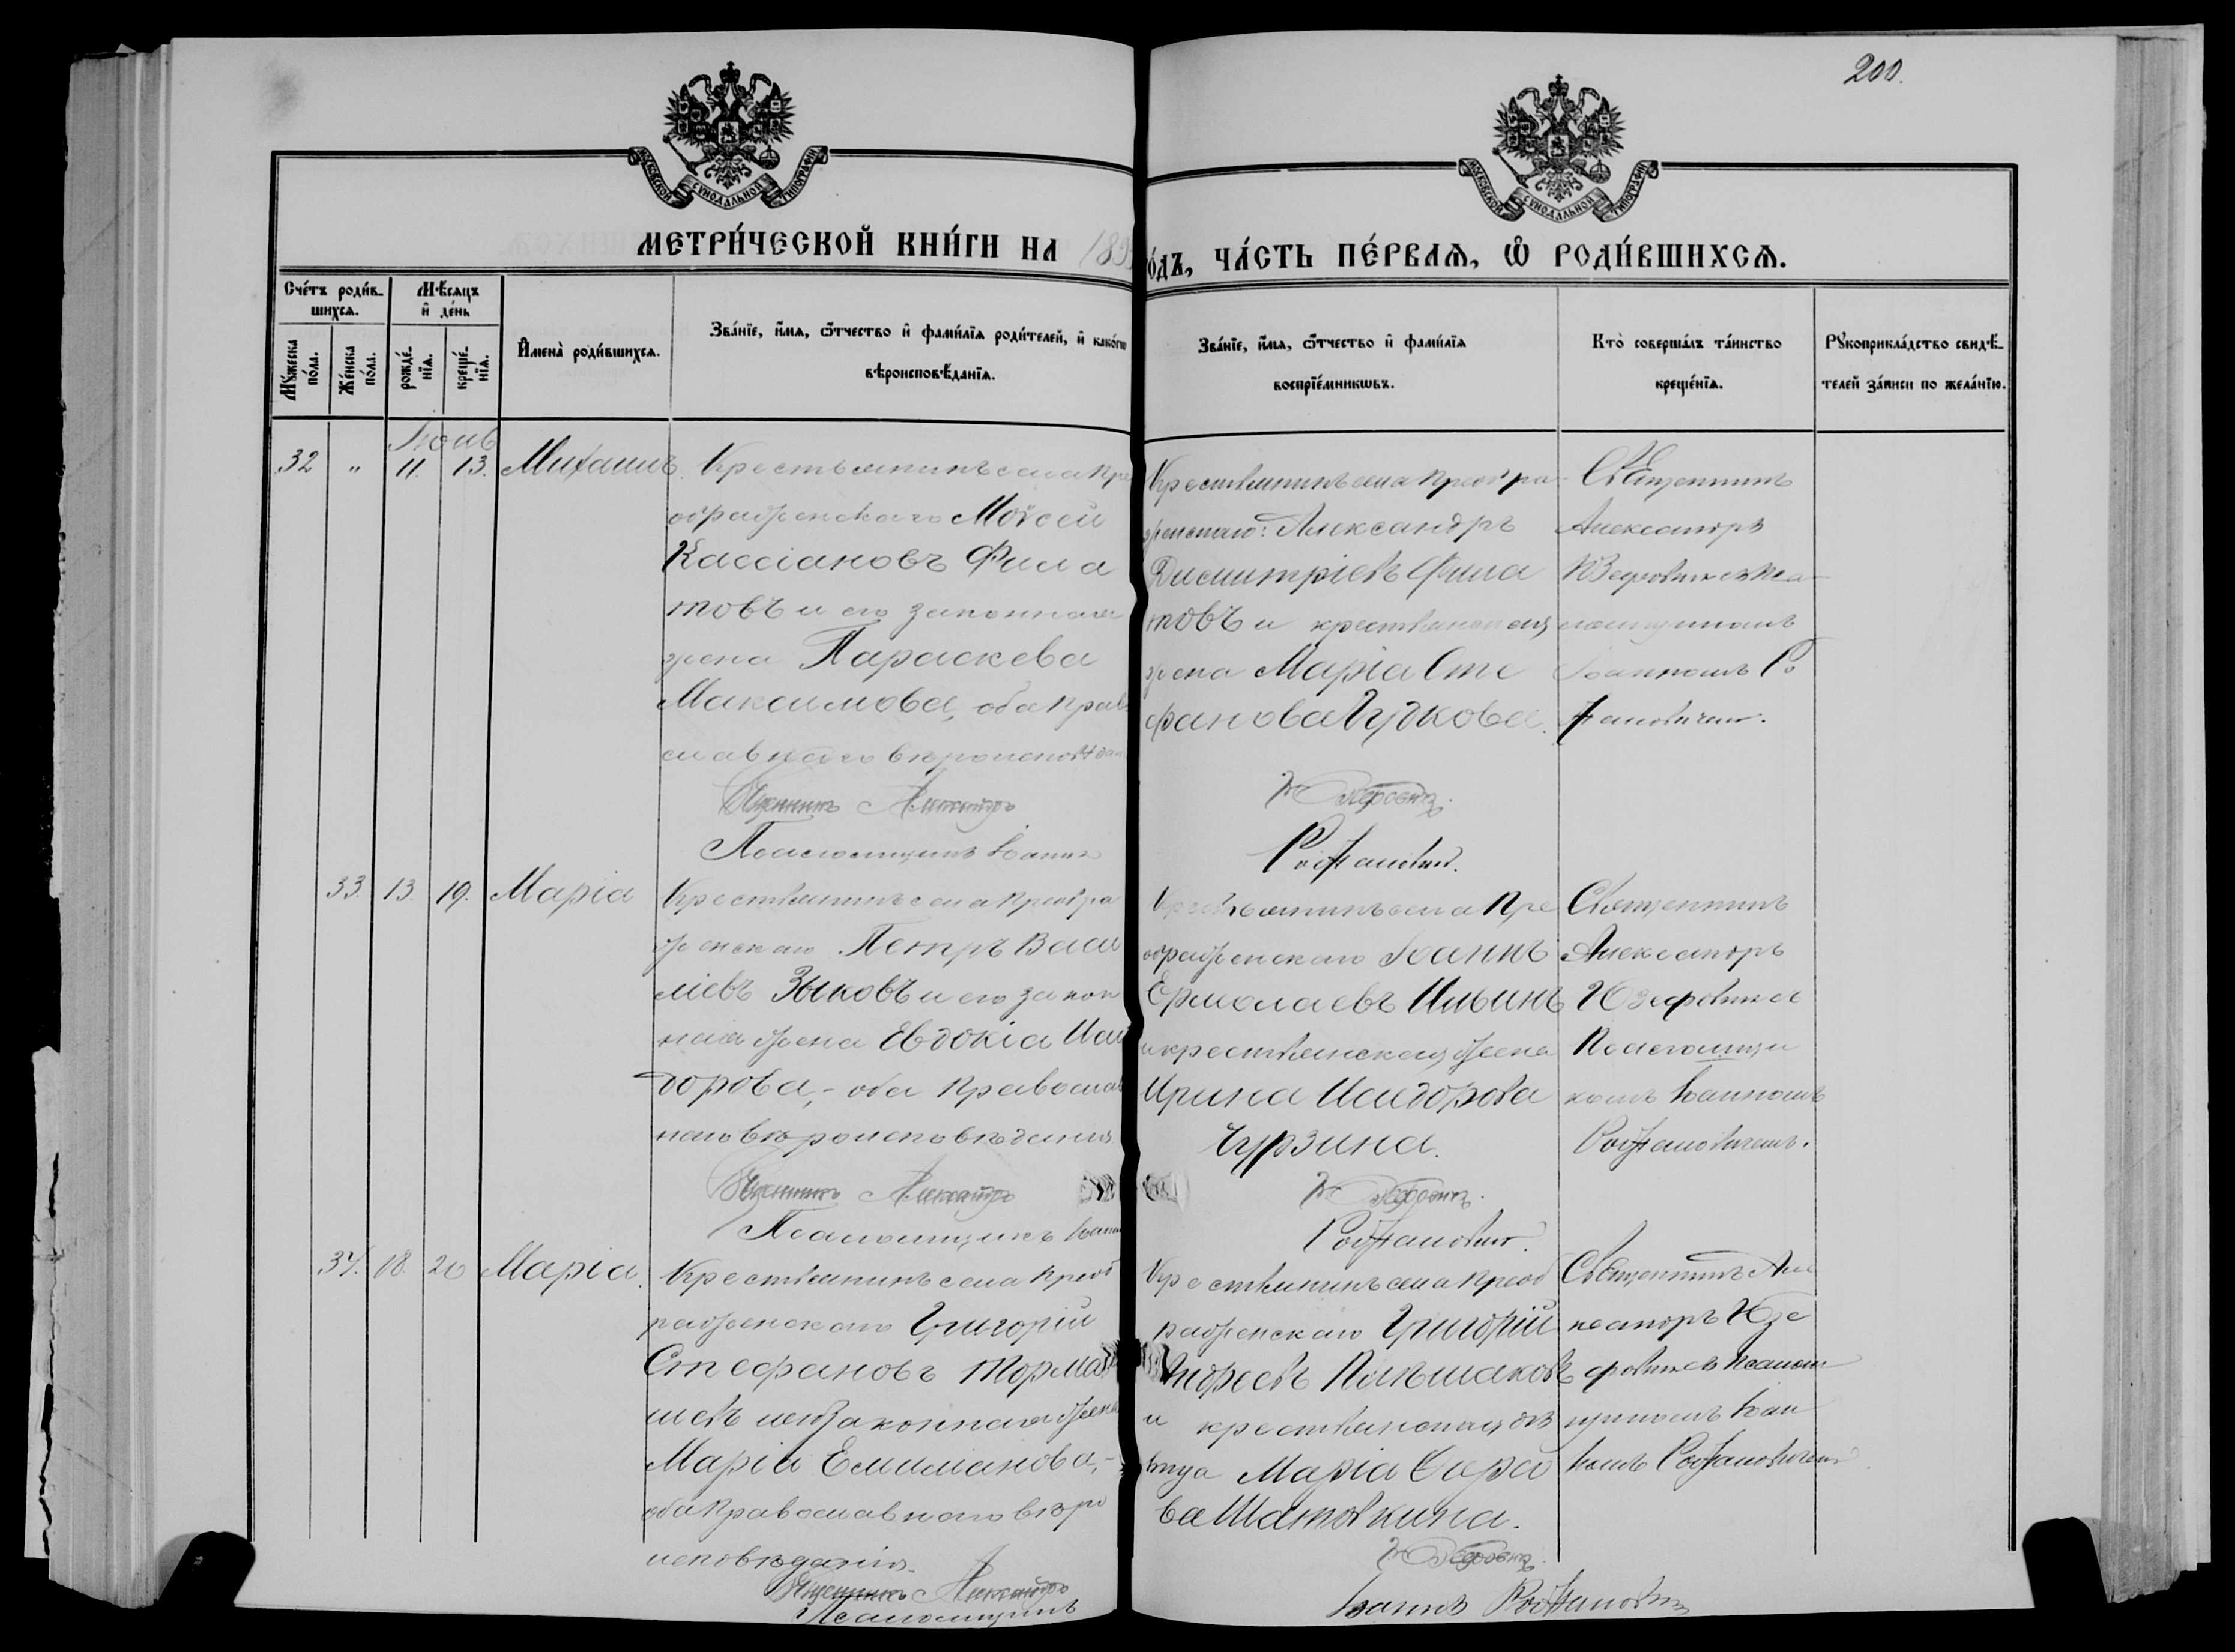 200.
МОСКОВСКОЙ СѴНОДАЛЬНОЙ ТИПОГРАФІИ
МОСКОВСКОЙ СѴНОДАЛЬНОЙ ТИПОГРАФІИ
МЕТРИ́ЧЕСКОЙ КНИ́ГИ НА 189
О́ДЪ, ЧА́СТЬ ПЕ́РВАѦ, Ѽ РОДИ́ВШИХСѦ.
Сче́тъ роди́в-
шихсѧ.
Мѣ́сѧцъ
и҆ де́нь
Мꙋ́жеска по́ла.
Же́нска по́ла.
рожде́-нїѧ.
креще́-нїѧ.
И҆мена̀ роди́вшихсѧ.
Зва́нїе, и҆́мѧ, ѻ҆́тчество и҆ фами́лїѧ роди́телей, и҆ како́гѡ
вѣроисповѣ́данїѧ.
Зва́нїе, и҆́мѧ, ѻ҆́тчество и҆ фами́лїѧ
воспрїе́мникѡвъ.
Кто̀ соверша́лъ та́инство
креще́нїѧ.
Рꙋкоприкла́дство свидѣ́-
телей за́писи по жела́нїю.
32 " 11. 13. Михаилъ.
Крестьянинъ села Пре
ображенскаго Моѵсей
Кассіановъ Фила
товъ и его законная
жена Параскева
Максимова, оба прав
славнаго вѣроисповѣдан
Священникъ Александръ
Псаломщикъ Іоаннъ
Крестьянинъ села Преобра
женскаго: Александръ
Димитріевъ Фила
товъ и крестьянская
жена Марія Сте
фанова Гудкова.
Рожановичъ.
Священникъ
Александръ
Юзефовичъ съ Пса
ломщикомъ
Іоанномъ Ро
жановичемъ.
33. 13. 19. Марія
Крестьянинъ села Преобра
женскаго Петръ Васи
ліевъ Зыковъ и его закон
ная жена Евдокія Иси
дорова,- оба православ
наго вѣроисповѣданія
Священникъ Александръ
Псаломщикъ Іоанн
Крестьянинъ села Пре
ображенскаго Іоаннъ
Ермолаевъ Ильинъ
и крестьянская жена
Ирина Исидорова
Чурзина.
Рожановичъ.
Священникъ
Александръ
Юзефовичъ съ
Псаломщи
комъ Іоанномъ
Рожановичемъ.
34. 18. 20 Марія.
Крестьянинъ села Преоб
раженскаго Григорій
Стефановъ Торма
шевъ и его законная жена
Марія Емиліанова,-
оба православнаго вѣро
исповѣданія.
Священникъ Александръ
Псаломщикъ
Крестьянинъ села Преоб
раженскаго Григорій
Андреевъ
и крестьянская дѣ
вица Марія Сарр
ва Шатовкина.
Іоаннъ Рожановичъ
Священникъ Але
ксандръ Юзе
фовичъ съ Псалом
щикомъ Іоан
номъ Рожановичемъ